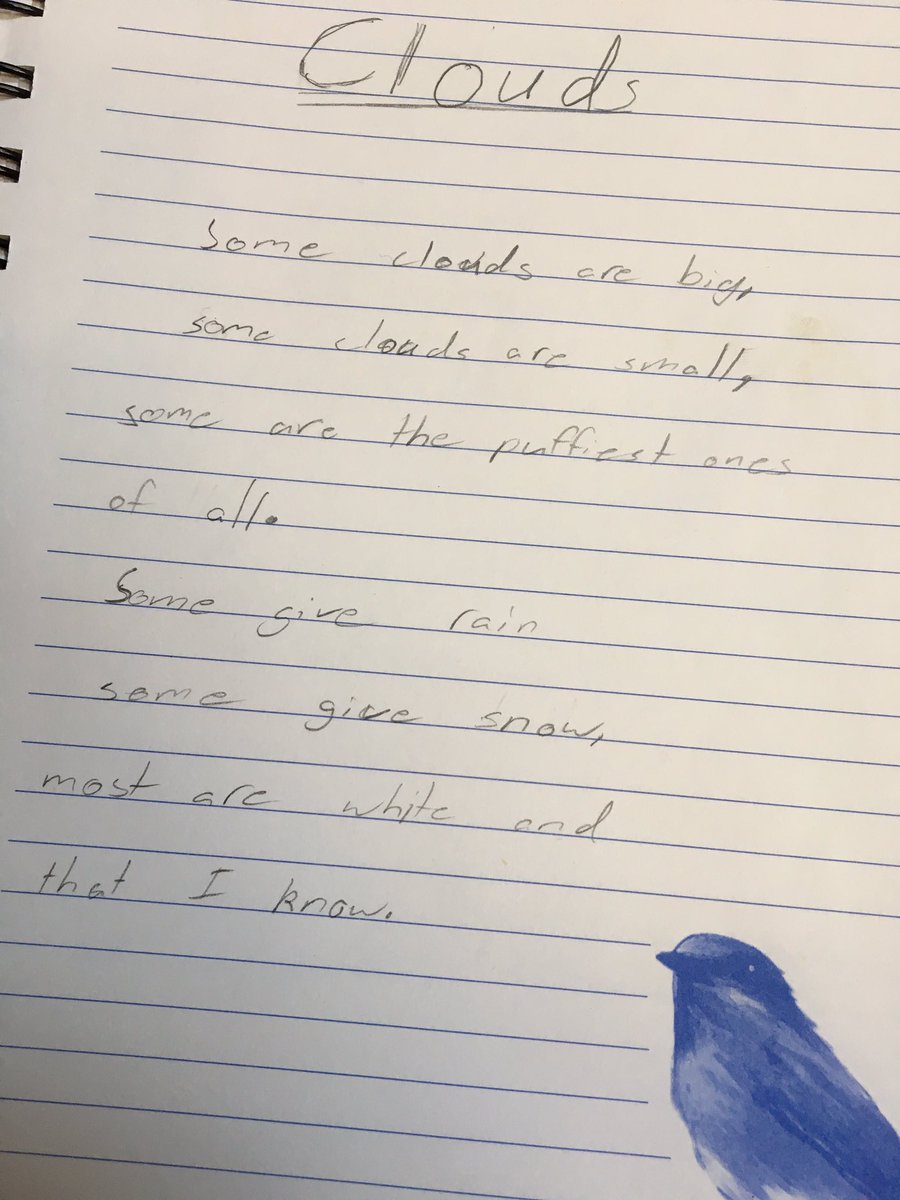 Clouds
Some clouds are big,
some clouds are small,
some are the puffiest ones
of all.
Some give rain
some give snow,
most are white and
that I know.